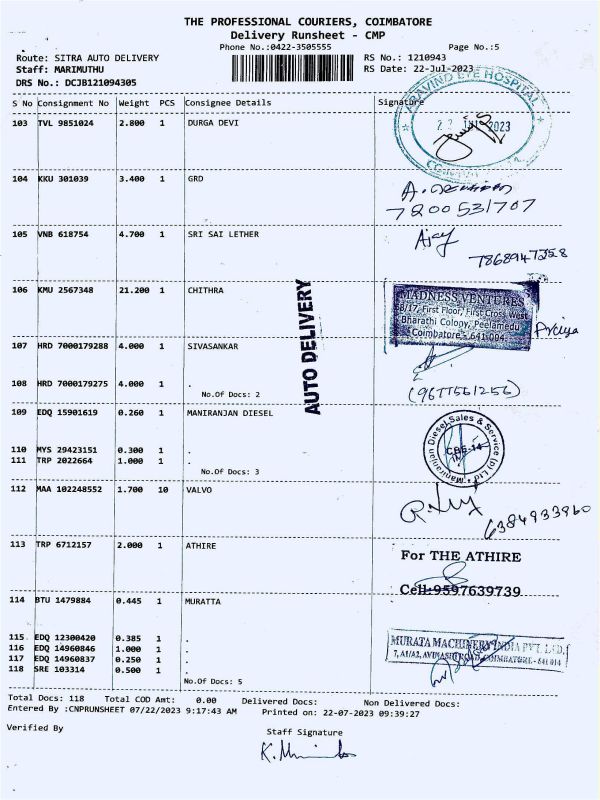 THE PROFESSIONAL COURIERS, COIMBATORE
Delivery Runsheet - CMP
Phone No.:0422-3505555 Page No.:5
Route: SITRA AUTO DELIVERY RS No.: 1210943
Staff: MARIMUTHU RS Date: 22-Jul-2023
DRS No.: DCJB121094305
S No Consignment No Weight PCS Consignee Details Signature
ARAVIND EYE HOSPITAL
103 TVL 9851024 2.800 1 DURGA DEVI
2023
104 KKU 301039 3.400 1 GRD
7200531707
105 VNB 618754 4.700 1 SRI SAI LETHER
Ajay
7868947258
106 KMU 2567348 21.200 1 CHITHRA
AUTO DELIVERY
MADNESS VENTURES
6B/17, First Floor, First Cross West
Bharathi Colony, Peelamedu
Coimbatore - 641 004
107 HRD 7000179288 4.000 1 SIVASANKAR
108 HRD 7000179275 4.000 1 .
No.Of Docs: 2
(9677561256)
109 EDQ 15901619 0.260 1 MANIRANJAN DIESEL
Maniranjan Diesel Sales & Service (p) Ltd
CBE-14
110 MYS 29423151 0.300 1 .
111 TRP 2022664 1.000 1 .
No.Of Docs: 3
112 MAA 102248552 1.700 10 VALVO
6384933960
113 TRP 6712157 2.000 1 ATHIRE
For THE ATHIRE
Cell:9597639739
114 BTU 1479884 0.445 1 MURATTA
115 EDQ 12300420 0.385 1 .
116 EDQ 14960846 1.000 1 .
117 EDQ 14960837 0.250 1 .
118 SRE 103314 0.500 1 .
No.Of Docs: 5
MURATA MACHINERY INDIA PVT. LTD.
7, A1/A2, AVINASHI ROAD, COIMBATORE - 641 014
Total Docs: 118 Total COD Amt: 0.00 Delivered Docs: Non Delivered Docs:
Entered By :CNPRUNSHEET 07/22/2023 9:17:43 AM Printed on: 22-07-2023 09:39:27
Verified By Staff Signature